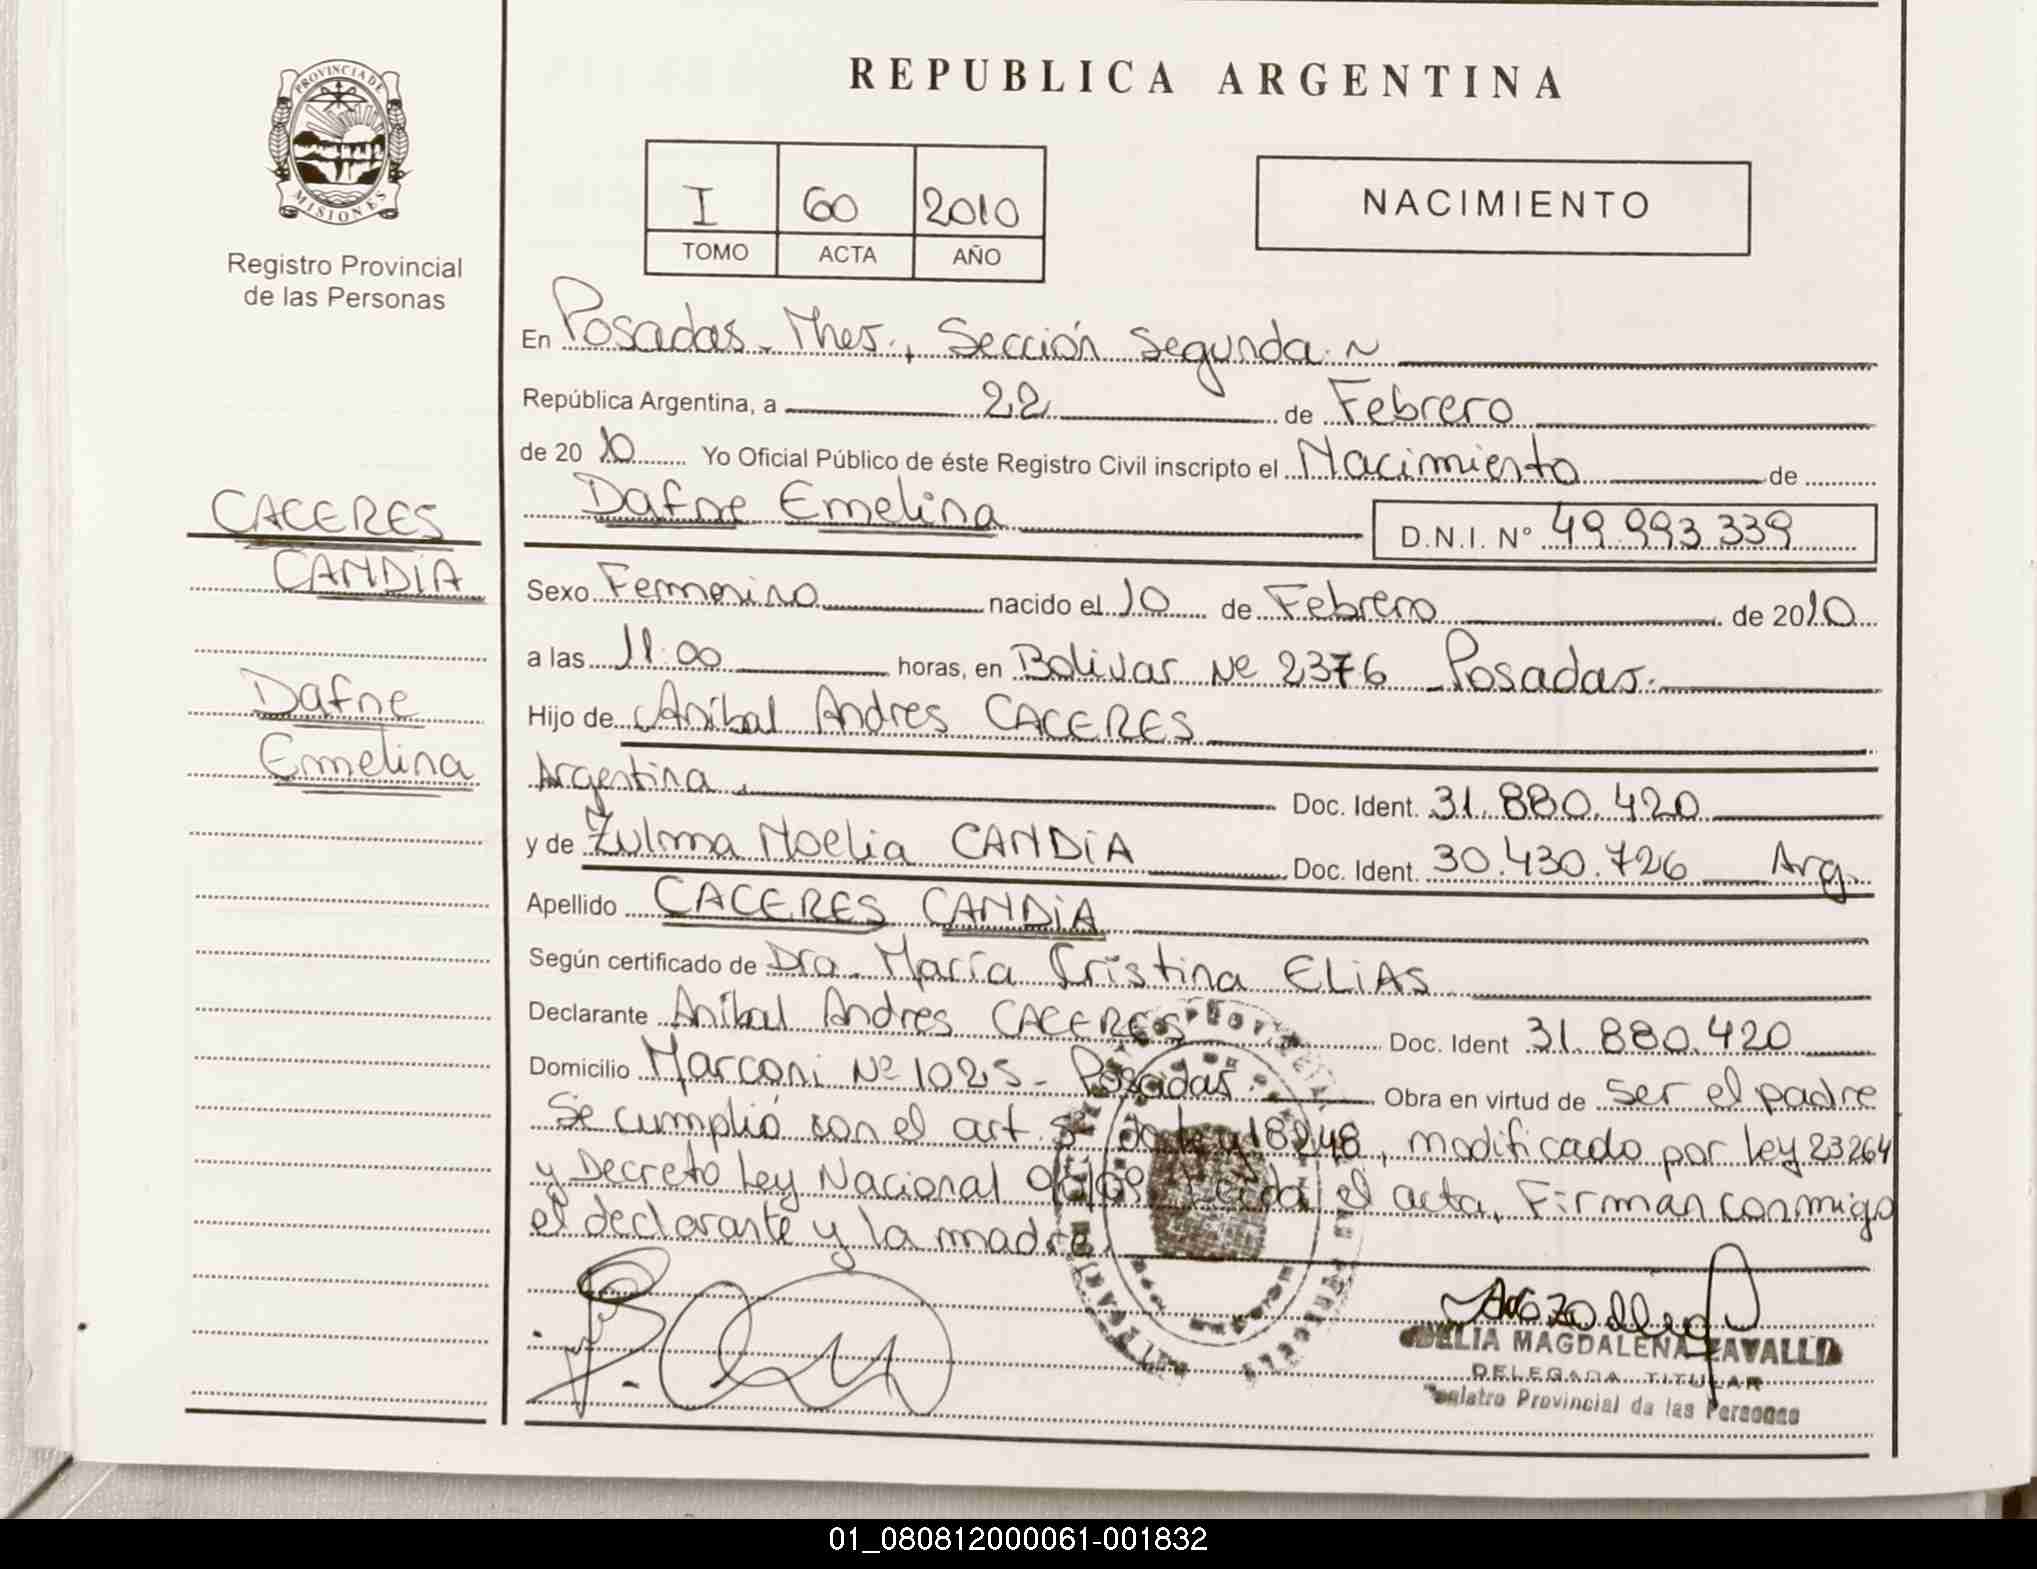 REPUBLICA ARGENTINA
PROVINCIA DE
MISIONES
Registro Provincial
de las Personas
I 60 2010
TOMO ACTA AÑO
NACIMIENTO
En Posadas - Mnes., Sección Segunda. ~
República Argentina, a 22 de Febrero
de 2010 Yo Oficial Público de éste Registro Civil inscripto el Nacimiento de
Dafne Emelina D.N.I. Nº 49.993.339
CACERES
CANDIA
Dafne
Emelina
Sexo Femenino nacido el 10 de Febrero de 2010
a las 11:00 horas, en Bolivar Nº 2376 - Posadas.
Hijo de Aníbal Andres CACERES
Argentina, Doc. Ident. 31.880.420
y de Zulma Noelia CANDIA Doc. Ident. 30.430.726 Arg.
Apellido CACERES CANDIA
Según certificado de Dra. María Cristina ELIAS
Declarante Aníbal Andres CACERES Doc. Ident 31.880.420
Domicilio Marconi Nº 1025 - Posadas. Obra en virtud de ser el padre
Se cumplió con el art. 5º de Ley 18248, modificado por Ley 23264
y Decreto Ley Nacional Leída el acta, Firman conmigo
el declarante y la madre.
DELIA MAGDALENA ZAVALLO
DELEGADA TITULAR
Registro Provincial de las Personas
01_080812000061-001832